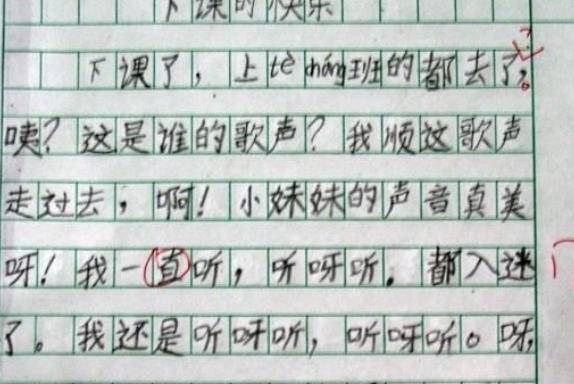 下课的快乐
下课了，上tè cháng班的都去了。
咦？这是谁的歌声？我顺这歌声
走过去，啊！小妹妹的声音真美
呀！我一直听，听呀听。都入迷
了。我还是听呀听，听呀听。呀，